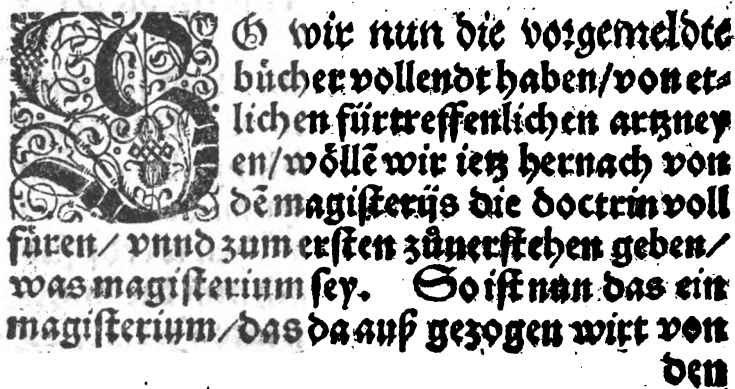 SO wir nun die vorgemeldte
bücher vollendt haben/von et⸗
lichen fürtreffenlichen artzney
en/wöllē wir ietz hernach von
dē magisterijs die doctrin voll
füren/ vnnd zum ersten zůuerstehen geben/
was magisterium sey. So ist nun das ein
magisterium/das da auß gezogen wirt von
den